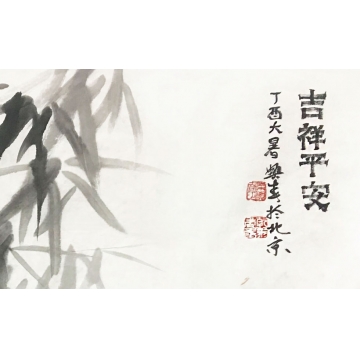 吉祥平安
丁酉大暑兴春於北京